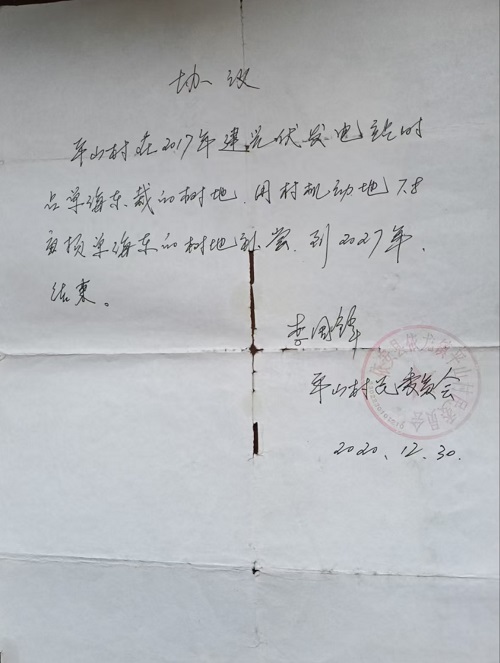 协议
平山村在2017年建光伏发电站时
占单海东栽的树地.用村机动地7.8
亩顶单海东的树地补尝.到2027年.
结束。
李国锋
平山村民委员会
2020.12.30.